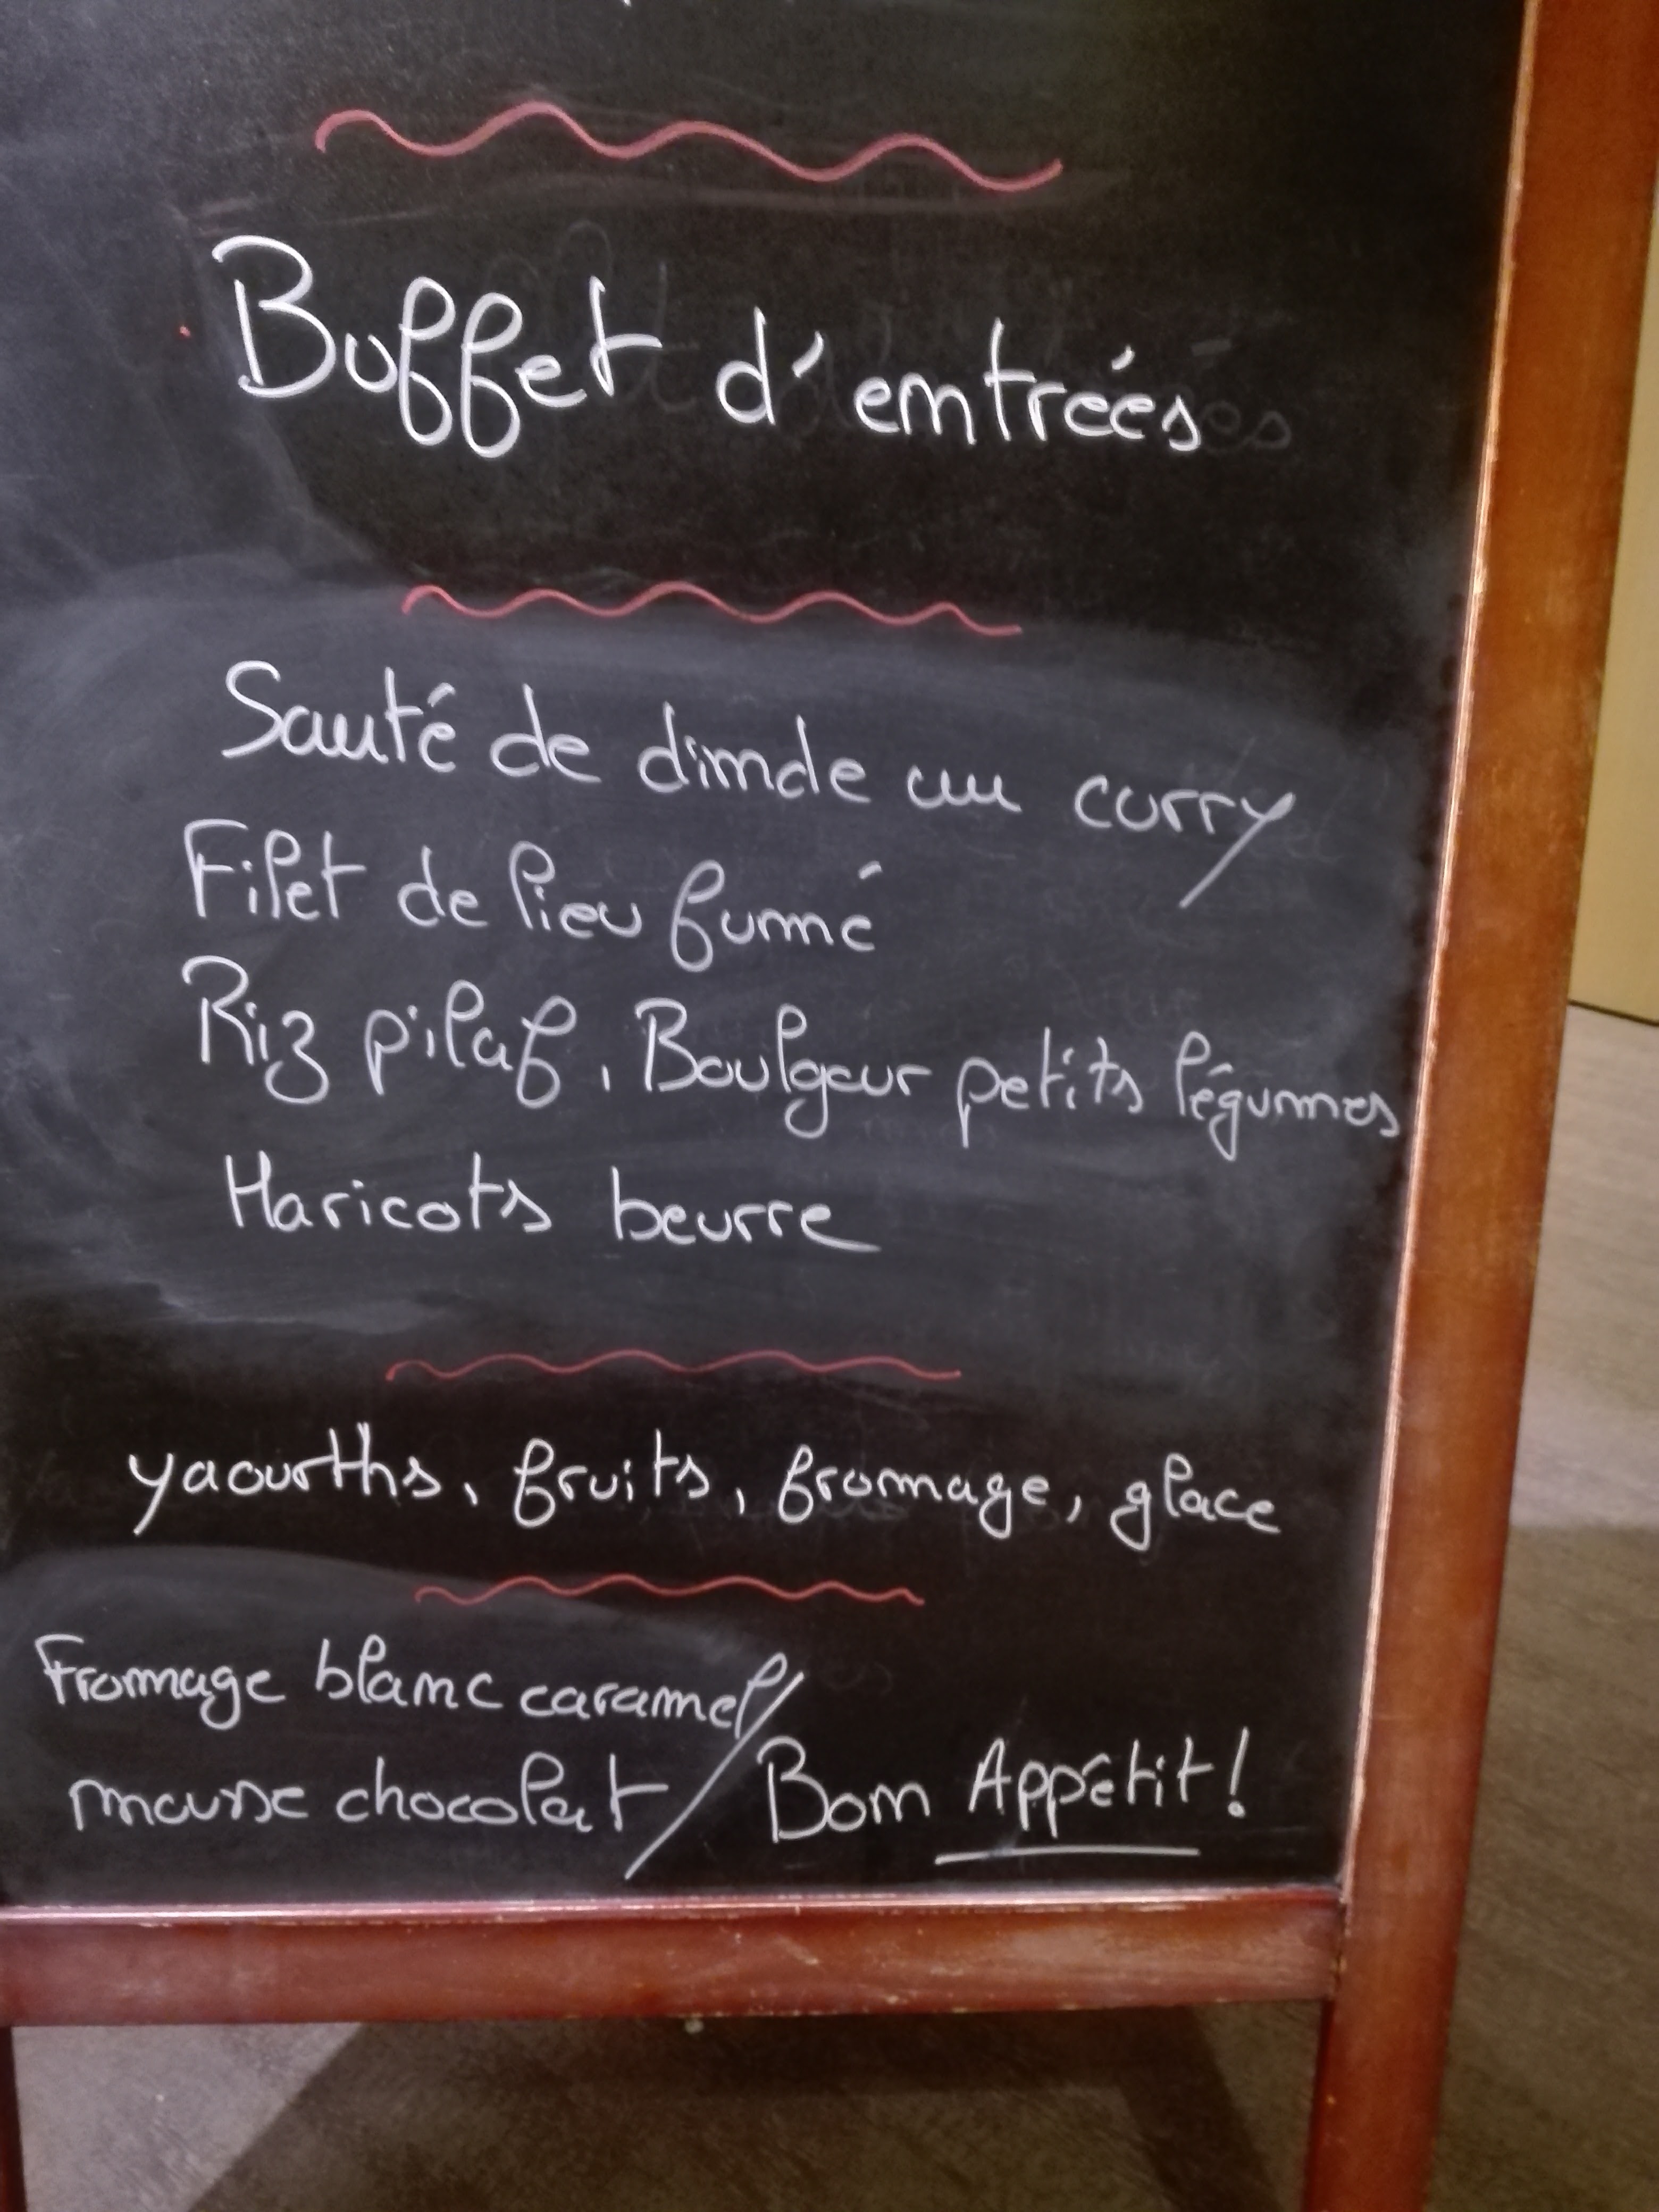 Buffet d'entrées
Sauté de dinde au curry
Filet de lieu fumé
Riz pilaf, Boulgour petits légumes
Haricots beurre
yaourths, fruits, fromage, glace
Fromage blanc caramel/
mousse chocolat/ Bon Appétit!